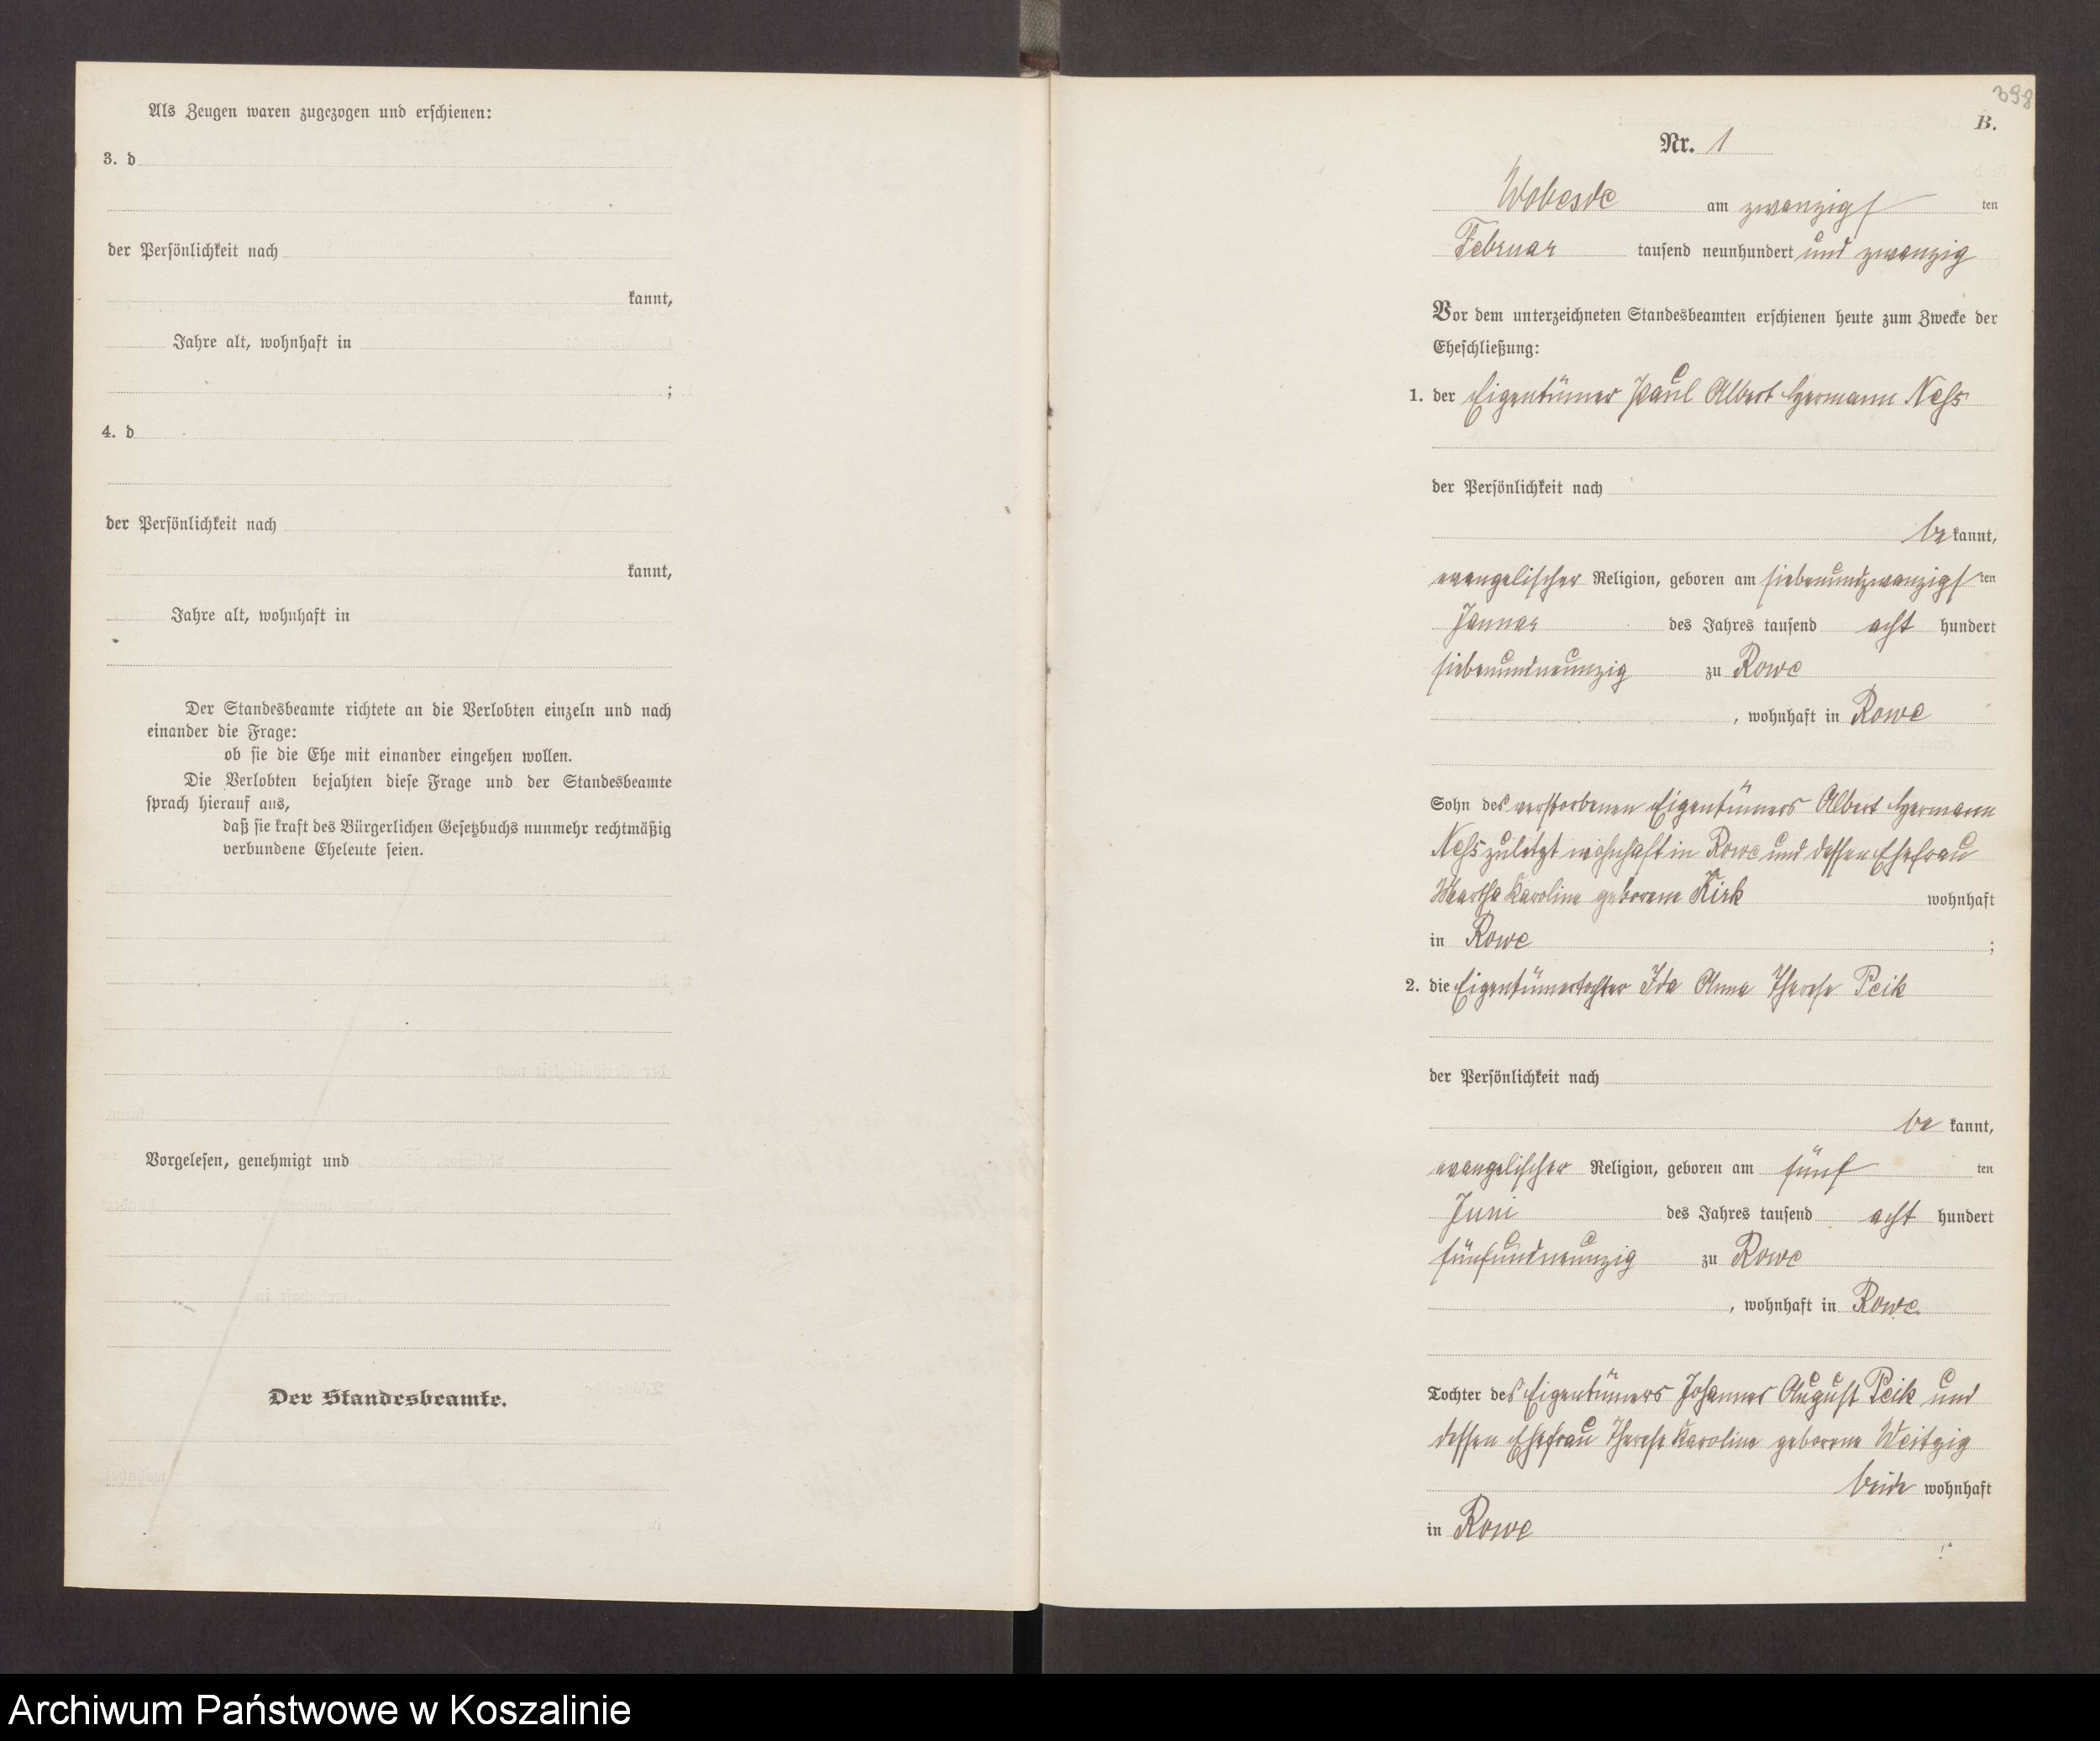 Als Zeugen waren zugezogen und erschienen:
3. d
der Persönlichkeit nach
kannt,
Jahre alt, wohnhaft in
;
4. d
der Persönlichkeit nach
kannt,
Jahre alt, wohnhaft in
Der Standesbeamte richtete an die Verlobten einzeln und nach
einander die Frage:
ob sie die Ehe mit einander eingehen wollen.
Die Verlobten bejahten diese Frage und der Standesbeamte
sprach hierauf aus,
daß sie kraft des Bürgerlichen Gesetzbuchs nunmehr rechtmäßig
verbundene Eheleute seien.
Vorgelesen, genehmigt und
Der Standesbeamte.
398
B.
Nr. 1
Wobesde am zwanzigsten
Februar tausend neunhundert und zwanzig
Vor dem unterzeichneten Standesbeamten erschienen heute zum Zwecke der
Eheschließung:
1. der Eigentümer Paul Albert Hermann Ness
der Persönlichkeit nach
be kannt,
evangelischer Religion, geboren am siebenundzwanzigsten
Januar des Jahres tausend acht hundert
siebenundneunzig zu Rowe
, wohnhaft in Rowe
Sohn des verstorbenen Eigentümers Albert Hermann
Ness zuletzt wohnhaft in Rowe und dessen Ehefrau
Martha Karoline geborene Kirk wohnhaft
in Rowe ;
2. die Eigentümertochter Ida Anna Therese Peik
der Persönlichkeit nach
be kannt,
evangelischer Religion, geboren am fünf ten
Juni des Jahres tausend acht hundert
fünfundneunzig zu Rowe
, wohnhaft in Rowe.
Tochter des Eigentümers Johannes August Peik und
dessen Ehefrau Therese Karoline geborene Weitzig
beide wohnhaft
in Rowe
Archiwum Państwowe w Koszalinie